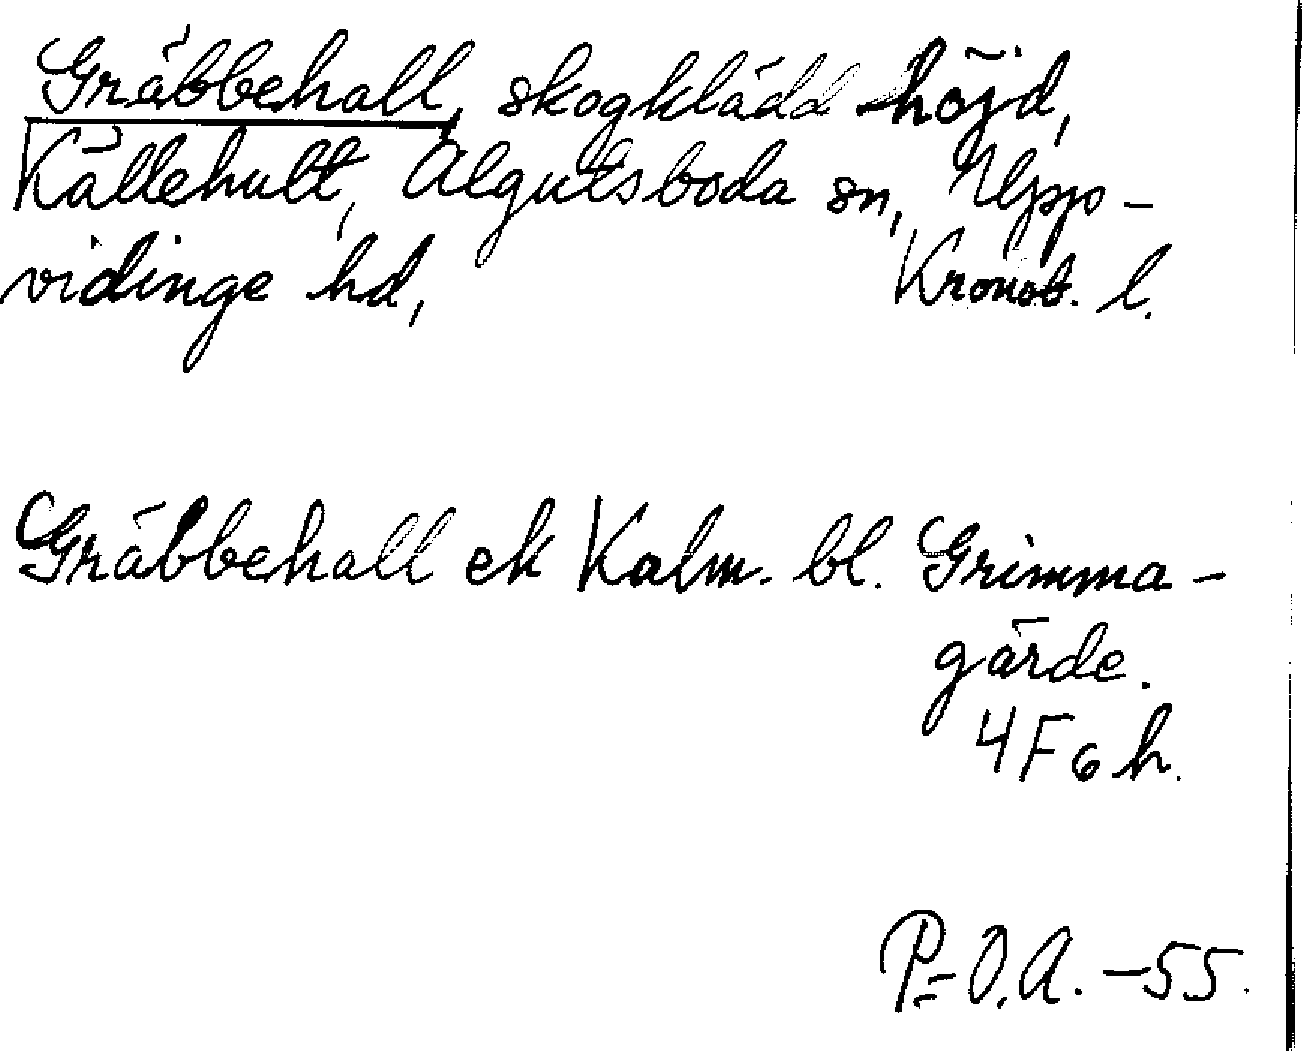 Gräbbehall, skogklädd höjd,
Källehult, Algutsboda sn, Upp-
vidinge hd, Kronob. l.
Gräbbehall ek Kalm. bl. Grimma-
gärde.
4F6h.
P=O.A. -55.